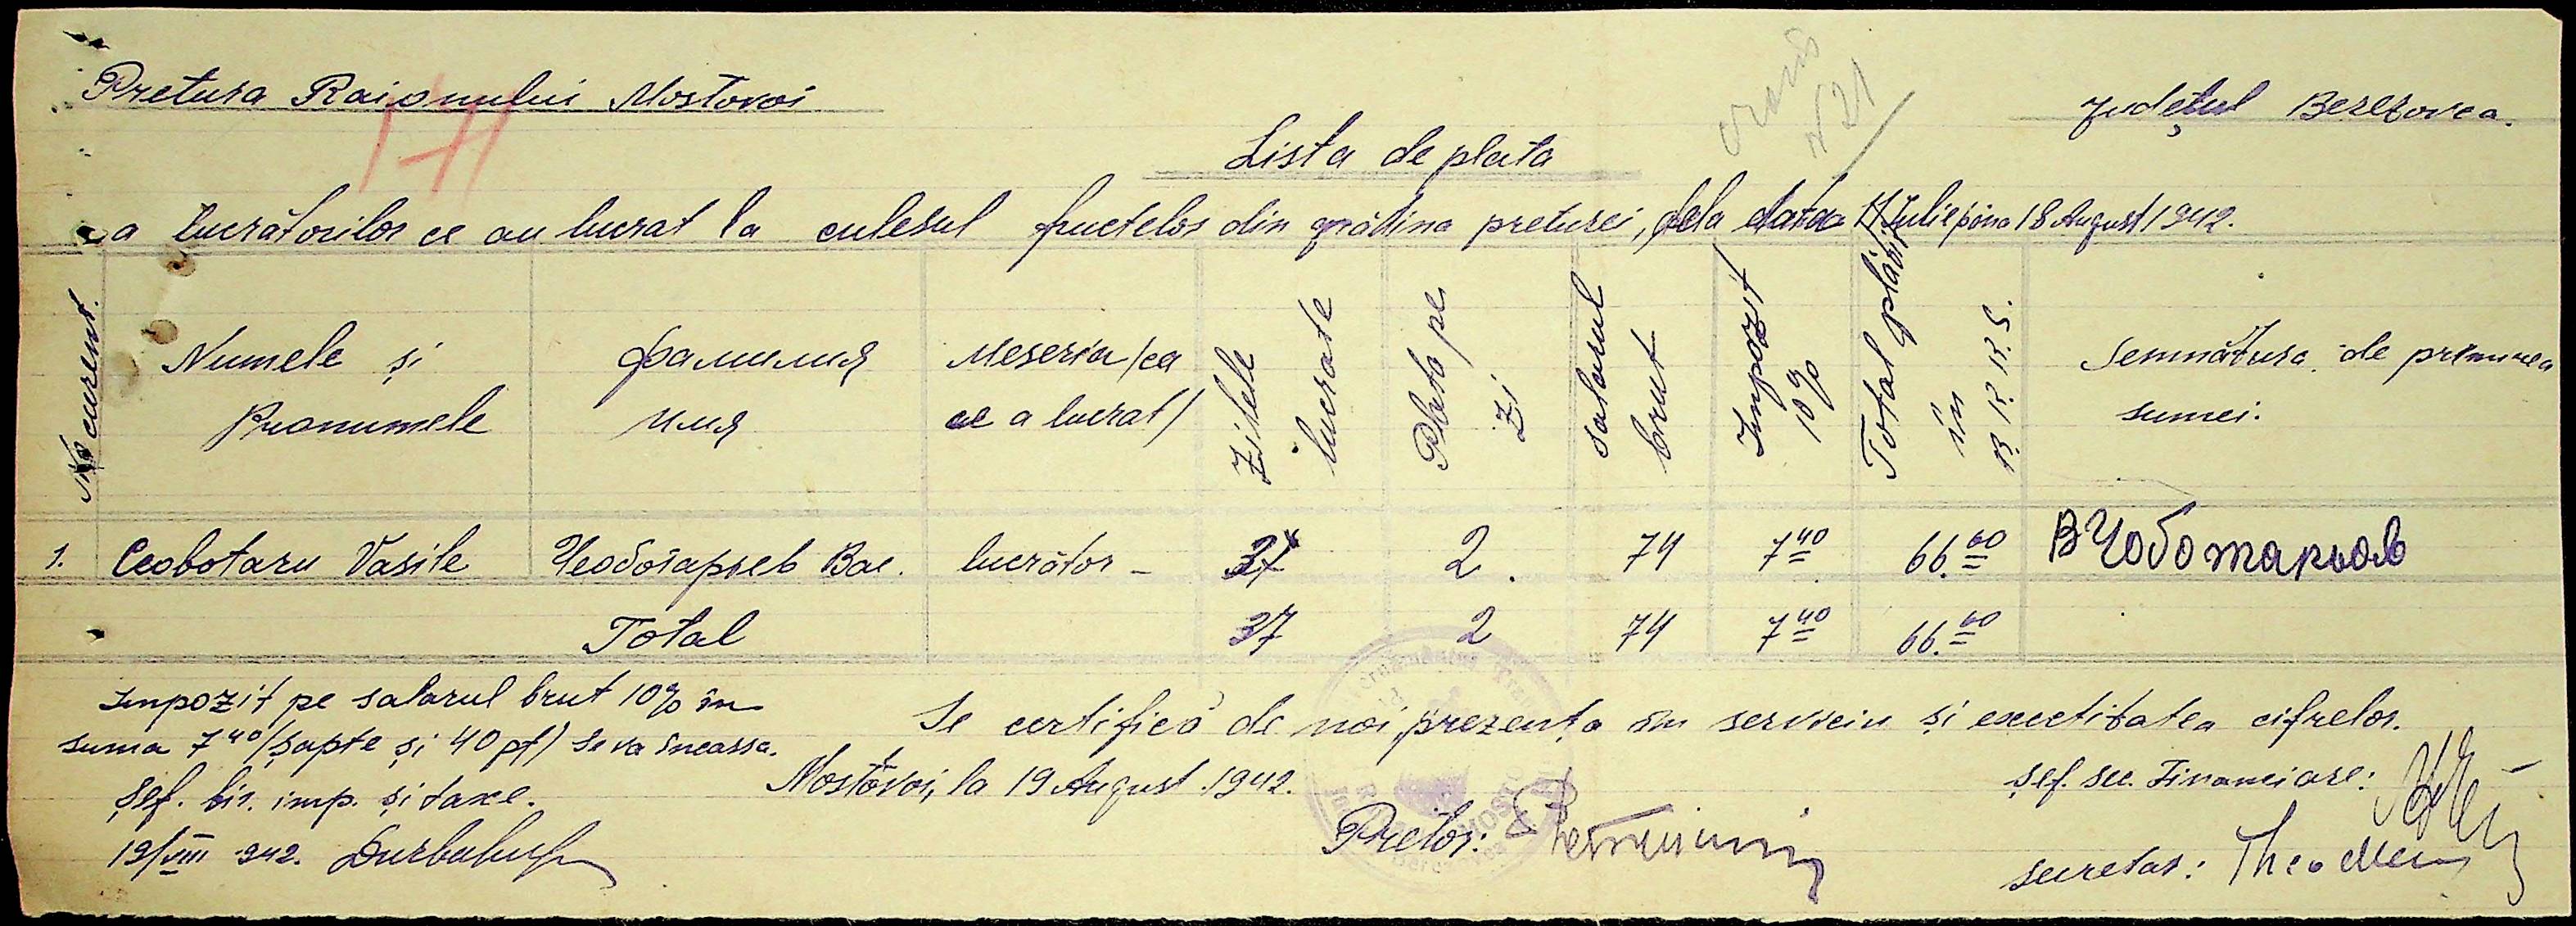 Pretura Raionului Mostovoi
Județul Berezovca.
171
N 21
Lista de plata
a lucrătorilor ce au lucrat la culesul fructelor din grădina preturei, dela data 11 Iulie pâna 18 August 1942.
No curent.
Numele și Pronumele
фамилия имя
Meseria /ca ce a lucrat/
Zilele lucrate
Plata pe zi
Salarul brut
Impozit 10%
Total plătit in R.K.K.S.
Semnătura de primirea sumei.
1. Ceobotaru Vasile Чеботарьев Вас. lucrător - 37 2. 74 7 40 66.60 В Чоботарьов
Total 37 2 74 7 40 66.60
Impozit pe salarul brut 10% în
suma 7 40 (șapte și 40 pf) se va încassa.
Șef. bir. imp. și taxe.
19/VIII 942.
Se certifică de noi, prezența în serviciu și exactitatea cifrelor.
Mostovoi, la 19 August 1942.
Pretor:
Șef. sec. Financiare:
Secretar: Theo